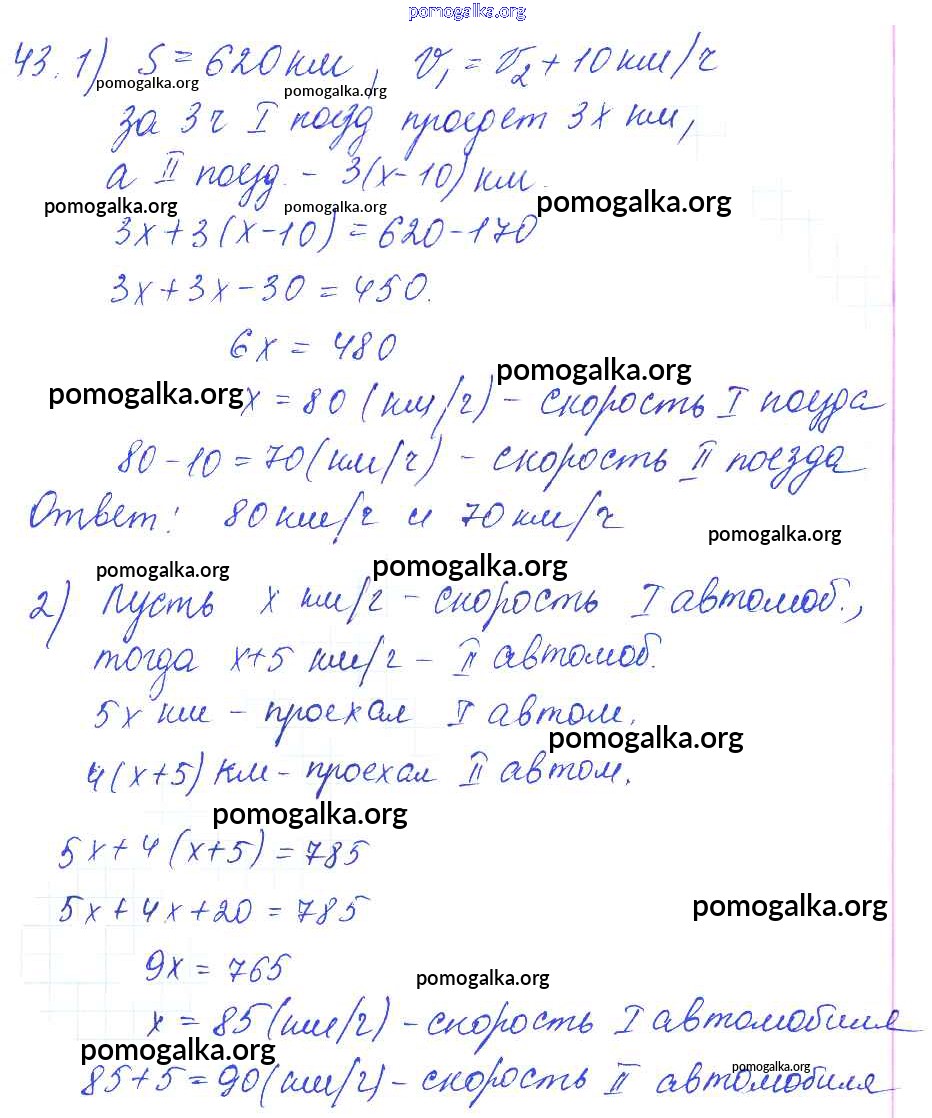 pomogalka.org
43. 1) S = 620 км, V₁ = V₂ + 10 км/ч
pomogalka.org pomogalka.org
за 3 ч I поезд проедет 3x км,
а II поезд. – 3(x-10) км.
pomogalka.org pomogalka.org pomogalka.org
3x + 3(x-10) = 620-170
3x + 3x - 30 = 450.
6x = 480
pomogalka.org pomogalka.org
x = 80 (км/ч) – скорость I поезда
80-10 = 70 (км/ч) – скорость II поезда
Ответ: 80 км/ч и 70 км/ч
pomogalka.org
pomogalka.org pomogalka.org
2) Пусть x км/ч – скорость I автомоб.,
тогда x+5 км/ч – II автомоб.
5x км – проехал I автом.
pomogalka.org
4(x+5) км – проехал II автом.
pomogalka.org
5x + 4(x+5) = 785
5x + 4x + 20 = 785
pomogalka.org
9x = 765
pomogalka.org
x = 85 (км/ч) – скорость I автомобиля
pomogalka.org pomogalka.org
85+5 = 90 (км/ч) – скорость II автомобиля